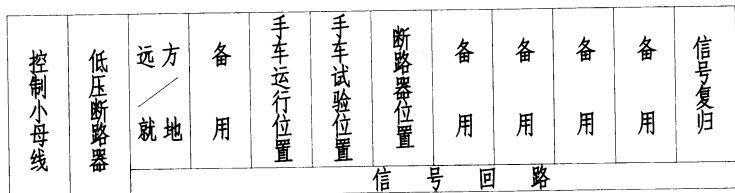 控制小母线
低压断路器
远方／就地
备用
手车运行位置
手车试验位置
断路器位置
备用
备用
备用
备用
信号复归
信号回路